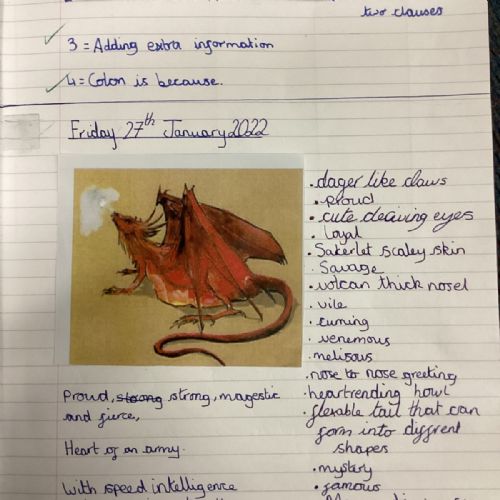 two clauses
3 = Adding extra information
4 = Colon is because.
Friday 27th January 2022
. dager like claws
. proud
. cute deaving eyes
. Loyal
. Sakerlet scaley skin
. Savage
. volcan thick nosel
. vile
. cuming
. venemous
. melisous
. nose to nose greeting
. heartrending howl
. flexable tail that can
form into diffrent
shapes
. mystery
. famous
Proud, strong strong, magestic
and fierce,
Heart of an army.
With speed intelligence